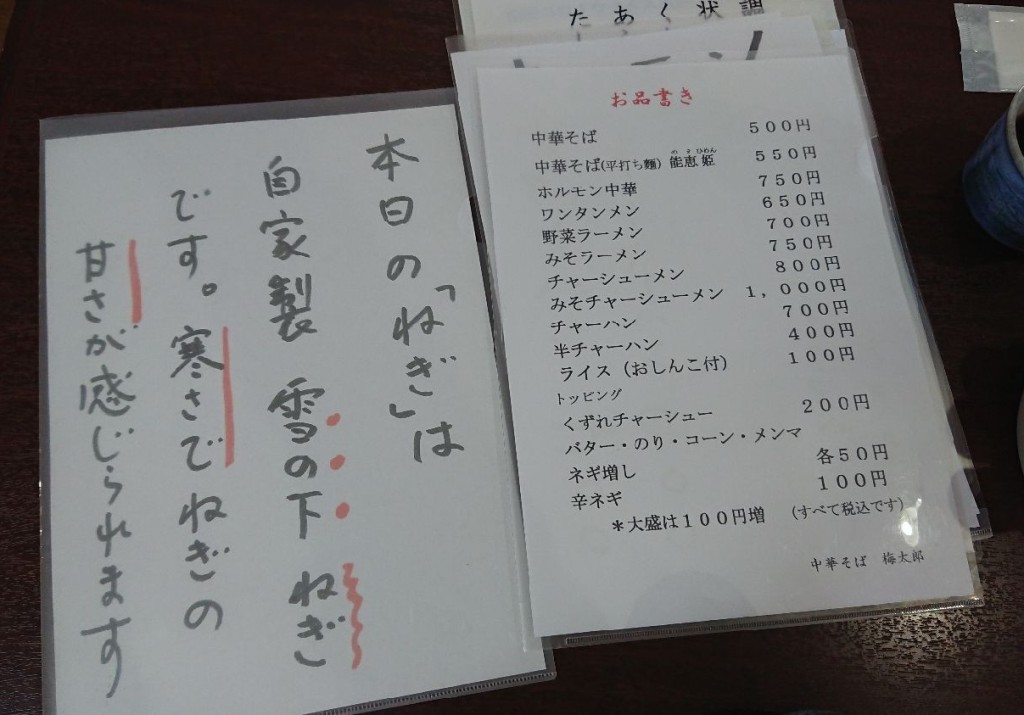 本日の「ねぎ」は
自家製 雪の下 ねぎ
です。寒さでねぎの
甘さが感じられます
お品書き
中華そば 500円
中華そば(平打ち麺) 能恵姫 550円
ホルモン中華 750円
ワンタンメン 650円
野菜ラーメン 700円
みそラーメン 750円
チャーシューメン 800円
みそチャーシューメン 1,000円
チャーハン 700円
半チャーハン 400円
ライス（おしんこ付） 100円
トッピング
くずれチャーシュー 200円
バター・のり・コーン・メンマ
ネギ増し 各50円
辛ネギ 100円
＊大盛は100円増 （すべて税込です）
中華そば 梅太郎